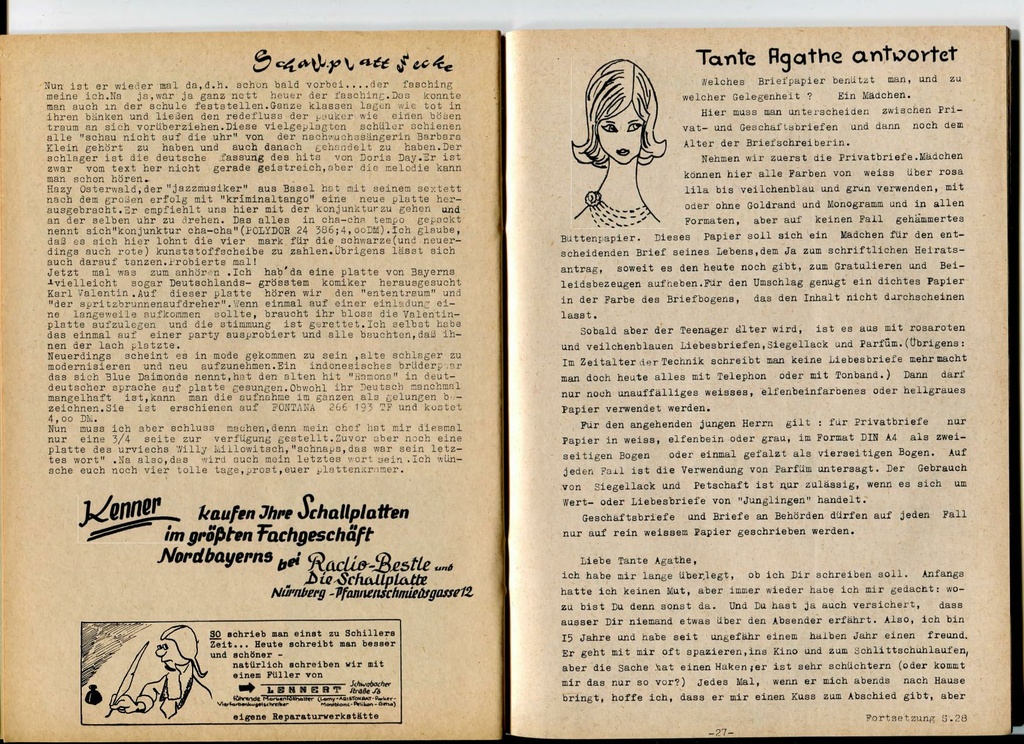 Schallplattenecke
Nun ist er wieder mal da,d.h. schon bald vorbei....der fasching
meine ich.Na ja,war ja ganz nett heuer der fasching.Das konnte
man auch in der schule feststellen.Ganze klassen lagen wie tot in
ihren bänken und ließen den redefluss der pauker wie einen bösen
traum an sich vorüberziehen.Diese vielgeplagten schüler schienen
alle "schau nicht auf die uhr" von der nachwuchssängerin Barbara
Klein gehört zu haben und auch danach gehandelt zu haben.Der
schlager ist die deutsche fassung des hits von Doris Day.Er ist
zwar vom text her nicht gerade geistreich,aber die melodie kann
man schon hören.
Hazy Osterwald,der "jazzmusiker" aus Basel hat mit seinem sextett
nach dem großen erfolg mit "kriminaltango" eine neue platte her-
ausgebracht.Er empfiehlt uns hier mit der konjunkturzu gehen und
an der selben uhr zu drehen. Das alles in cha-cha tempo gepackt
nennt sich"konjunktur cha-cha"(POLYDOR 24 386;4,ooDM).Ich glaube,
daß es sich hier lohnt die vier mark für die schwarze(und neuer-
dings auch rote) kunststoffscheibe zu zahlen.Übrigens lässt sich
auch darauf tanzen.Probierts mal!
Jetzt mal was zum anhören .Ich hab'da eine platte von Bayerns
vielleicht sogar Deutschlands- grösstem komiker herausgesucht
Karl Valentin.Auf dieser platte hören wir den "ententraum" und
"der spritzbrunnenaufdreher".Wenn einmal auf einer einladung ei-
ne langeweile aufkommen sollte, braucht ihr bloss die Valentin-
platte aufzulegen und die stimmung ist gerettet.Ich selbst habe
das einmal auf einer party ausprobiert und alle bauchten,daß ih-
nen der lach platzte.
Neuerdings scheint es in mode gekommen zu sein ,alte schlager zu
modernisieren und neu aufzunehmen.Ein indonesisches brüderpaar
das sich Blue Daimonds nennt,hat den alten hit "Ramona" in deut-
deutscher sprache auf platte gesungen.Obwohl ihr Deutsch manchmal
mangelhaft ist,kann man die aufnahme im ganzen als gelungen be-
zeichnen.Sie ist erschienen auf FONTANA 266 193 TF und kostet
4,oo DM.
Nun muss ich aber schluss machen,denn mein chef hat mir diesmal
nur eine 3/4 seite zur verfügung gestellt.Zuvor aber noch eine
platte des urviechs Willy Millowitsch,"schnaps,das war sein letz-
tes wort" .Na also,das wird auch mein letztes wort sein.Ich wün-
sche euch noch vier tolle tage,prost,euer plattenkramer.
Kenner kaufen Ihre Schallplatten
im größten Fachgeschäft
Nordbayerns bei Radio-Bestle und
Die Schallplatte
Nürnberg - Pfannenschmiedsgasse 12
SO schrieb man einst zu Schillers
Zeit... Heute schreibt man besser
und schöner -
natürlich schreiben wir mit
einem Füller von
LENNERT Schwabacher Straße 58
führende Markenfüllhalter (Lamy-Aristokrat-Parker-
Vierfarbenkugelschreiber Montblanc-Pelikan-Geha)
eigene Reparaturwerkstätte
Tante Agathe antwortet
Welches Briefpapier benützt man, und zu
welcher Gelegenheit ? Ein Mädchen.
Hier muss man unterscheiden zwischen Pri-
vat- und Geschäftsbriefen und dann noch dem
Alter der Briefschreiberin.
Nehmen wir zuerst die Privatbriefe.Mädchen
können hier alle Farben von weiss über rosa
lila bis veilchenblau und grün verwenden, mit
oder ohne Goldrand und Monogramm und in allen
Formaten, aber auf keinen Fall gehämmertes
Büttenpapier. Dieses Papier soll sich ein Mädchen für den ent-
scheidenden Brief seines Lebens,dem Ja zum schriftlichen Heirats-
antrag, soweit es den heute noch gibt, zum Gratulieren und Bei-
leidsbezeugen aufheben.Für den Umschlag genügt ein dichtes Papier
in der Farbe des Briefbogens, das den Inhalt nicht durchscheinen
lasst.
Sobald aber der Teenager älter wird, ist es aus mit rosaroten
und veilchenblauen Liebesbriefen,Siegellack und Parfüm.(Übrigens:
Im Zeitalter der Technik schreibt man keine Liebesbriefe mehr macht
man doch heute alles mit Telephon oder mit Tonband.) Dann darf
nur noch unauffälliges weisses, elfenbeinfarbenes oder hellgraues
Papier verwendet werden.
Für den angehenden jungen Herrn gilt : für Privatbriefe nur
Papier in weiss, elfenbein oder grau, im Format DIN A4 als zwei-
seitigen Bogen oder einmal gefalzt als vierseitigen Bogen. Auf
jeden Fall ist die Verwendung von Parfüm untersagt. Der Gebrauch
von Siegellack und Petschaft ist nur zulässig, wenn es sich um
Wert- oder Liebesbriefe von "Junglingen" handelt.
Geschäftsbriefe und Briefe an Behörden dürfen auf jeden Fall
nur auf rein weissem Papier geschrieben werden.
Liebe Tante Agathe,
ich habe mir lange überlegt, ob ich Dir schreiben soll. Anfangs
hatte ich keinen Mut, aber immer wieder habe ich mir gedacht: wo-
zu bist Du denn sonst da. Und Du hast ja auch versichert, dass
ausser Dir niemand etwas über den Absender erfährt. Also, ich bin
15 Jahre und habe seit ungefähr einem halben Jahr einen freund.
Er geht mit mir oft spazieren,ins Kino und zum Schlittschuhlaufen,
aber die Sache hat einen Haken;er ist sehr schüchtern (oder kommt
mir das nur so vor?) Jedes Mal, wenn er mich abends nach Hause
bringt, hoffe ich, dass er mir einen Kuss zum Abschied gibt, aber
Fortsetzung S.28
-27-